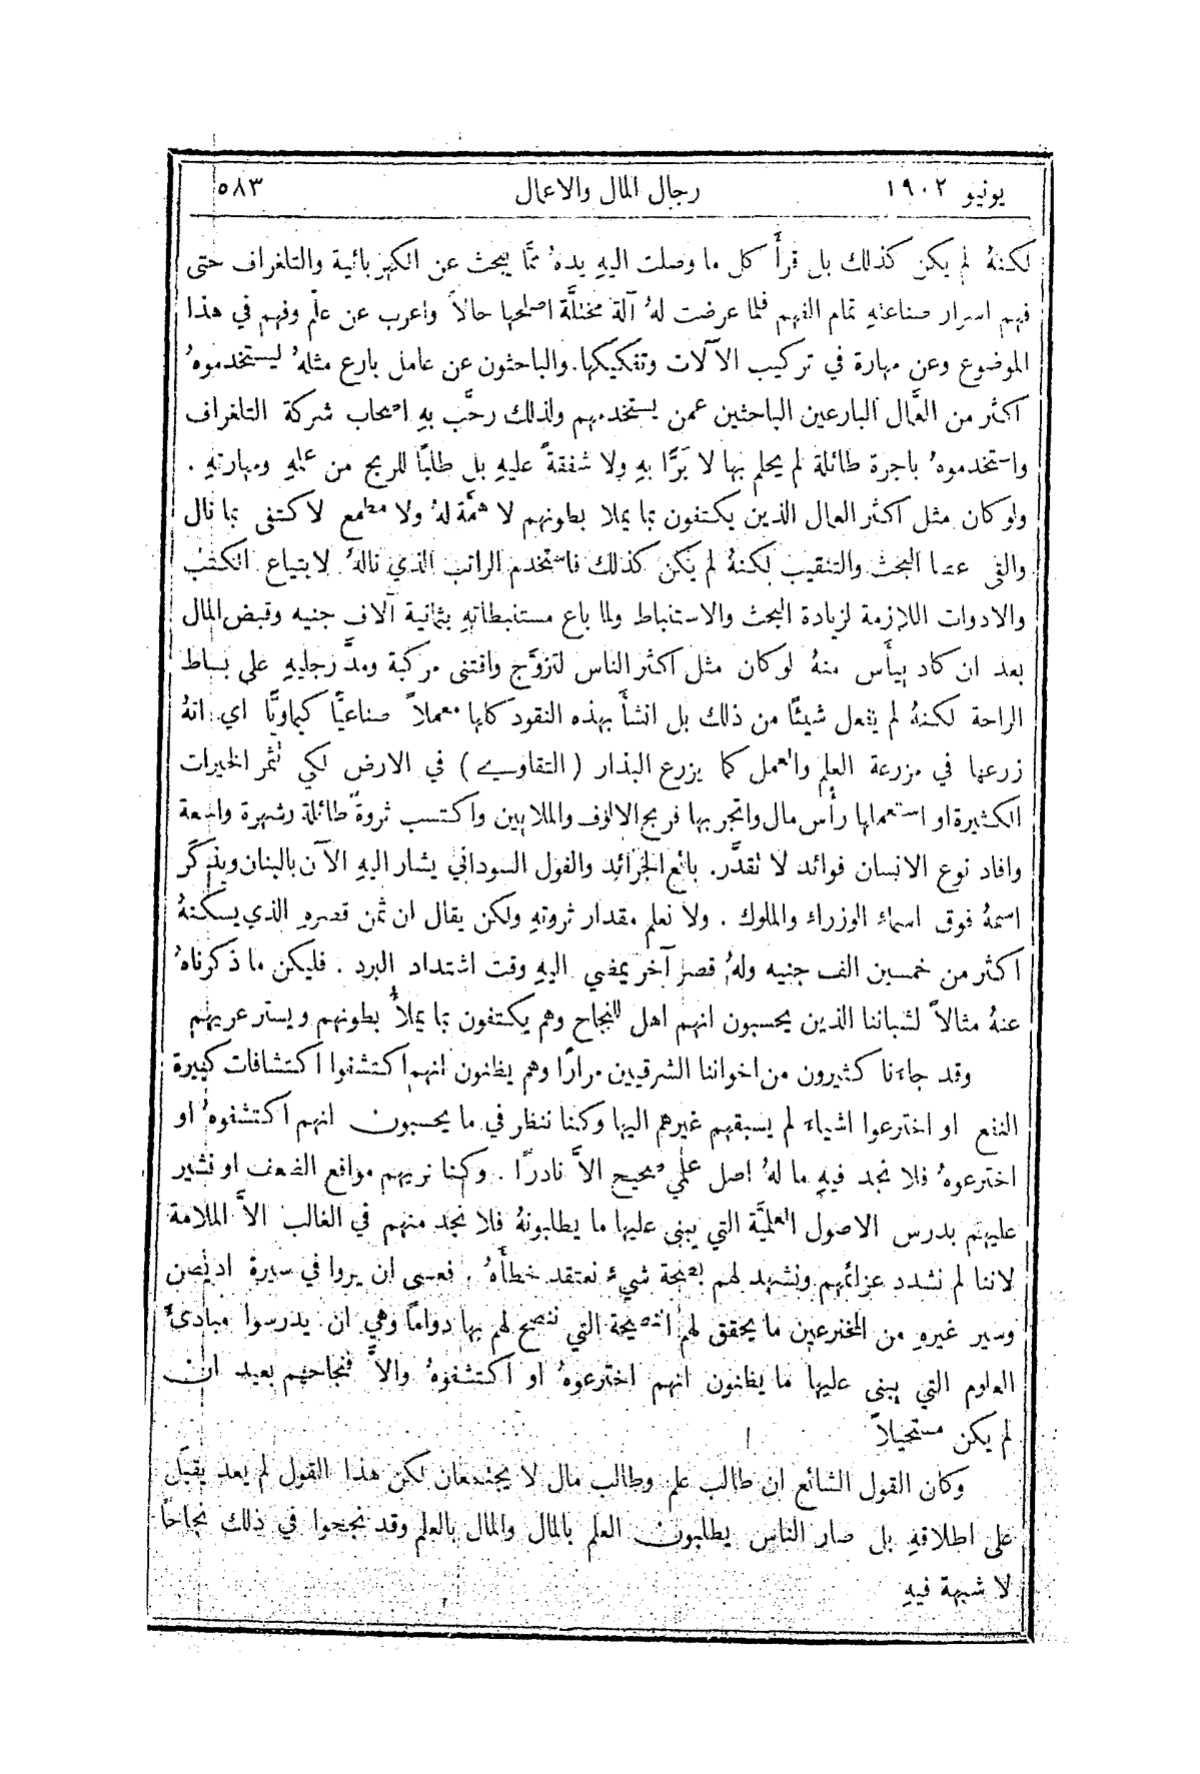 يونيو ١٩٠٢ رجال المال والاعمال ٥٨٣
لكنهُ لم يكن كذلك بل قرأَ كل ما وصلت اليهِ يدهُ ممَّا يبحث عن الكهربائية والتلغراف حتى
فهم اسرار صناعتهِ تمام الفهم فلما عرضت لهُ آلة مختلَّة اصلحها حالاً واعرب عن علم وفهم في هذا
الموضوع وعن مهارة في تركيب الآلات وتفكيكها. والباحثون عن عامل بارع مثلهُ ليستخدموهُ
اكثر من العمَّال البارعين الباحثين عمن يستخدمهم ولذلك رحَّب بهِ اصحاب شركة التلغراف
واستخدموهُ باجرة طائلة لم يحلم بها لا بَرًّا بهِ ولا شفقةً عليهِ بل طلبًا للربح من عملهِ ومهارتهِ .
ولو كان مثل اكثر العمال الذين يكتفون بما يملا بطونهم لا همَّة لهُ ولا مطمع لاكتفى بما نال
والقى عصا البحث والتنقيب لكنهُ لم يكن كذلك فاستخدم الراتب الذي نالهُ لابتياع الكتب
والادوات اللازمة لزيادة البحث والاستنباط ولما باع مستنبطاتهِ بثمانية آلاف جنيه وقبض المال
بعد ان كاد ييأَس منهُ لو كان مثل اكثر الناس لتزوَّج واقتنى مركبة ومدَّ رجليهِ على بساط
الراحة لكنهُ لم يفعل شيئًا من ذلك بل انشأَ بهذه النقود كلها معملاً صناعيًّا كيماويًّا اي انهُ
زرعها في مزرعة العلم والعمل كما يزرع البذار (التقاوي) في الارض لكي تثمر الخيرات
الكثيرة او استعملها رأْس مال واتجر بها فربح الالوف والملايين واكتسب ثروةً طائلة وشهرة واسعة
وافاد نوع الانسان فوائد لا تقدَّر. بائع الجرائد والفول السوداني يشار اليهِ الآن بالبنان ويذكر
اسمهُ فوق اسماء الوزراء والملوك . ولا نعلم مقدار ثروتهِ ولكن يقال ان ثمن قصرهِ الذي يسكنهُ
اكثر من خمسين الف جنيه ولهُ قصر آخر يمضي اليهِ وقت اشتداد البرد . فليكن ما ذكرناهُ
عنهُ مثالاً لشباننا الذين يحسبون انهم اهل للنجاح وهم يكتفون بما يملأُ بطونهم ويستر عريهم
وقد جاءنا كثيرون من اخواننا الشرقيين مرارًا وهم يظنون انهم اكتشفوا اكتشافات كبيرة
النفع او اخترعوا اشياء لم يسبقهم غيرهم اليها وكنا ننظر في ما يحسبون انهم اكتشفوهُ او
اخترعوهُ فلا نجد فيهِ ما لهُ اصل علمي صحيح الاَّ نادرًا . وكنا نريهم مواقع الضعف او نشير
عليهم بدرس الاصول العلميَّة التي يبنى عليها ما يطلبونهُ فلا نجد منهم في الغالب الاَّ الملامة
لاننا لم نشدد عزائمهم ونشهد لهم بصحة شيءٍ نعتقد خطأَهُ . فعسى ان يروا في سيرة اديصن
وسير غيرهِ من المخترعين ما يحقق لهم النصيحة التي ننصح لهم بها دوامًا وهي ان يدرسوا مبادئَ
العلوم التي يبنى عليها ما يظنون انهم اخترعوهُ او اكتشفوهُ والاَّ فنجاحهم بعيد ان
لم يكن مستحيلاً
وكان القول الشائع ان طالب علم وطالب مال لا يجتمعان لكن هذا القول لم يعد يقبَل
على اطلاقهِ بل صار الناس يطلبون العلم بالمال والمال بالعلم وقد نجحوا في ذلك نجاحًا
لا شبهة فيهِ